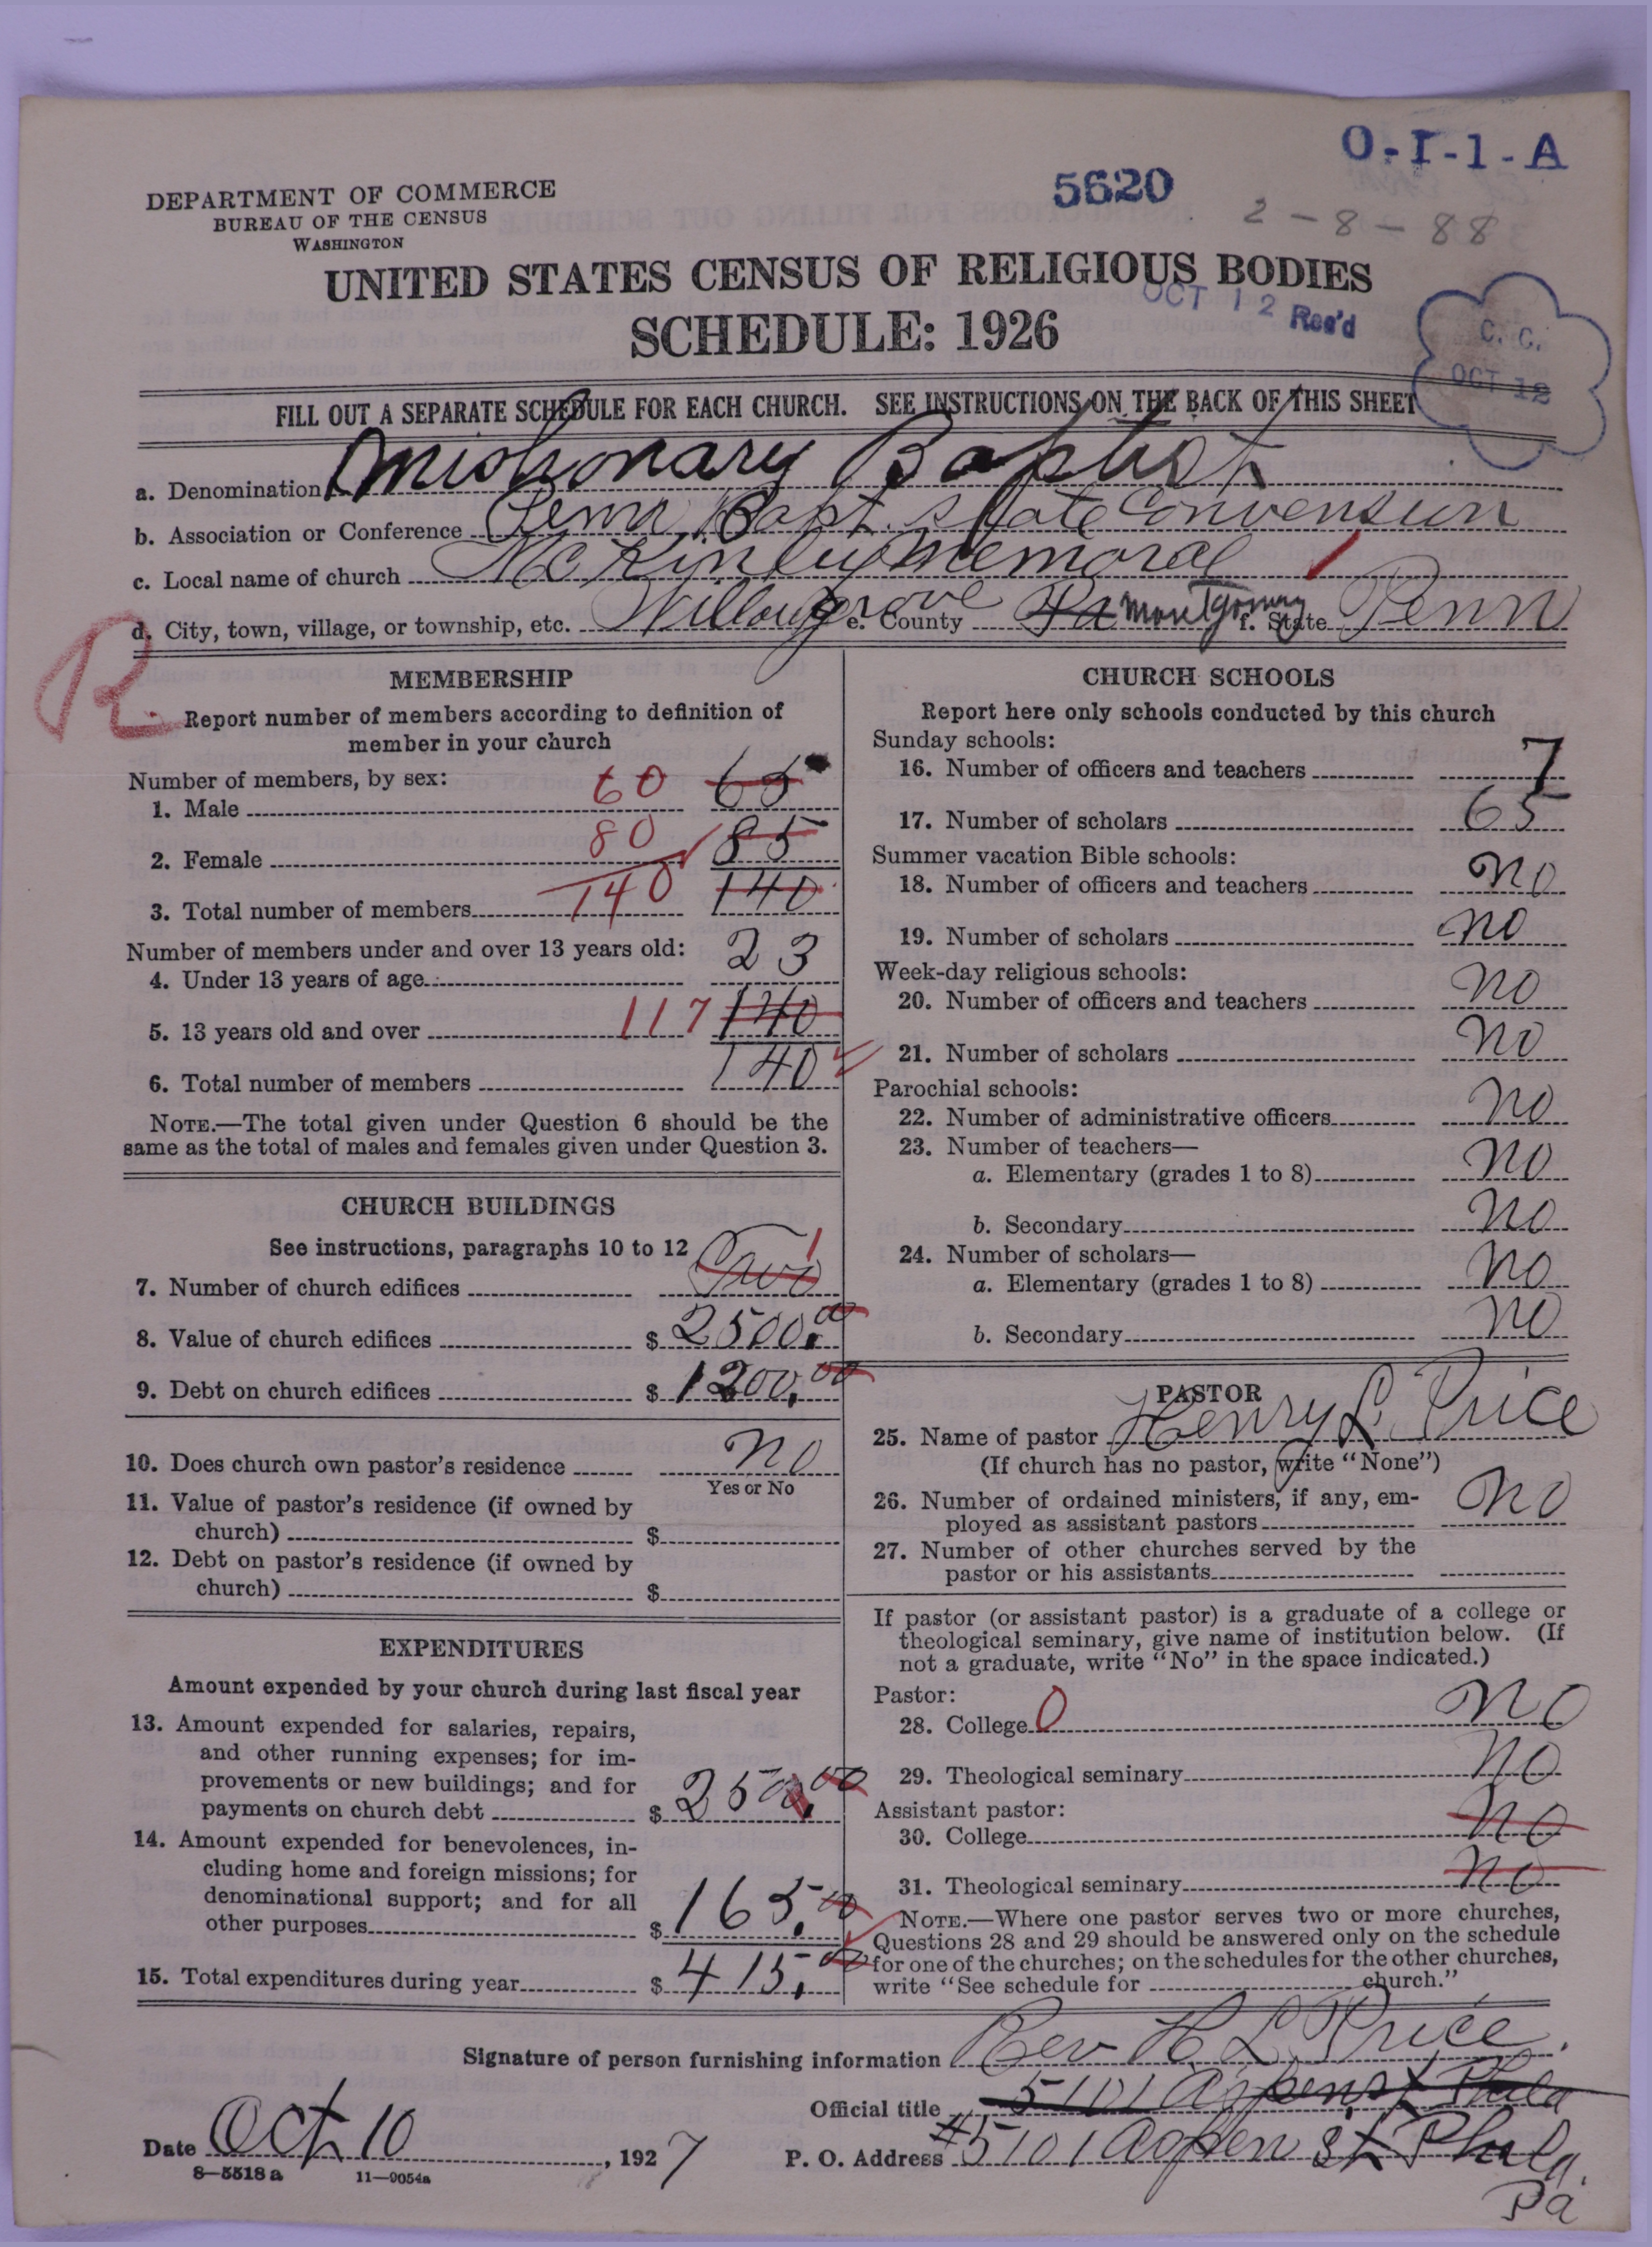 O-I-1-A
5620
2-8-88
DEPARTMENT OF COMMERCE
BUREAU OF THE CENSUS
WASHINGTON
UNITED STATES CENSUS OF RELIGIOUS BODIES
OCT 12 Rec'd
SCHEDULE: 1926
C. C.
OCT 12
FILL OUT A SEPARATE SCHEDULE FOR EACH CHURCH. SEE INSTRUCTIONS ON THE BACK OF THIS SHEET
a. Denomination Missionary Baptist
b. Association or Conference Penn, Bapt. State Convension
c. Local name of church McKinley Memoral
d. City, town, village, or township, etc. Willowgrove e. County Pa Montgomery f. State Penn
R
MEMBERSHIP
Report number of members according to definition of
member in your church
Number of members, by sex:
1. Male 60 65
2. Female 80 85
3. Total number of members 140 140
Number of members under and over 13 years old:
4. Under 13 years of age 23
5. 13 years old and over 117 140
6. Total number of members 140
NOTE.—The total given under Question 6 should be the
same as the total of males and females given under Question 3.
CHURCH BUILDINGS
See instructions, paragraphs 10 to 12
7. Number of church edifices 1
8. Value of church edifices $ 2500.00
9. Debt on church edifices $ 1200.00
10. Does church own pastor's residence no
Yes or No
11. Value of pastor's residence (if owned by
church) $
12. Debt on pastor's residence (if owned by
church) $
EXPENDITURES
Amount expended by your church during last fiscal year
13. Amount expended for salaries, repairs,
and other running expenses; for im-
provements or new buildings; and for
payments on church debt $ 250.00
14. Amount expended for benevolences, in-
cluding home and foreign missions; for
denominational support; and for all
other purposes $ 165.00
15. Total expenditures during year $ 415.00
CHURCH SCHOOLS
Report here only schools conducted by this church
Sunday schools:
16. Number of officers and teachers 7
17. Number of scholars 65
Summer vacation Bible schools:
18. Number of officers and teachers no
19. Number of scholars no
Week-day religious schools:
20. Number of officers and teachers no
21. Number of scholars no
Parochial schools:
22. Number of administrative officers no
23. Number of teachers—
a. Elementary (grades 1 to 8) no
b. Secondary no
24. Number of scholars—
a. Elementary (grades 1 to 8) no
b. Secondary no
PASTOR
25. Name of pastor Henry L. Price
(If church has no pastor, write "None")
26. Number of ordained ministers, if any, em-
ployed as assistant pastors no
27. Number of other churches served by the
pastor or his assistants
If pastor (or assistant pastor) is a graduate of a college or
theological seminary, give name of institution below. (If
not a graduate, write "No" in the space indicated.)
Pastor:
28. College 0 no
29. Theological seminary no
Assistant pastor:
30. College no
31. Theological seminary no
NOTE.—Where one pastor serves two or more churches,
Questions 28 and 29 should be answered only on the schedule
for one of the churches; on the schedules for the other churches,
write "See schedule for church."
Signature of person furnishing information Rev H L Price.
Official title 5101 Aspen st Phila
Date Oct 10, 1927 P. O. Address #5101 Aspen St Phila.
Pa
8-5518 a 11-9054a